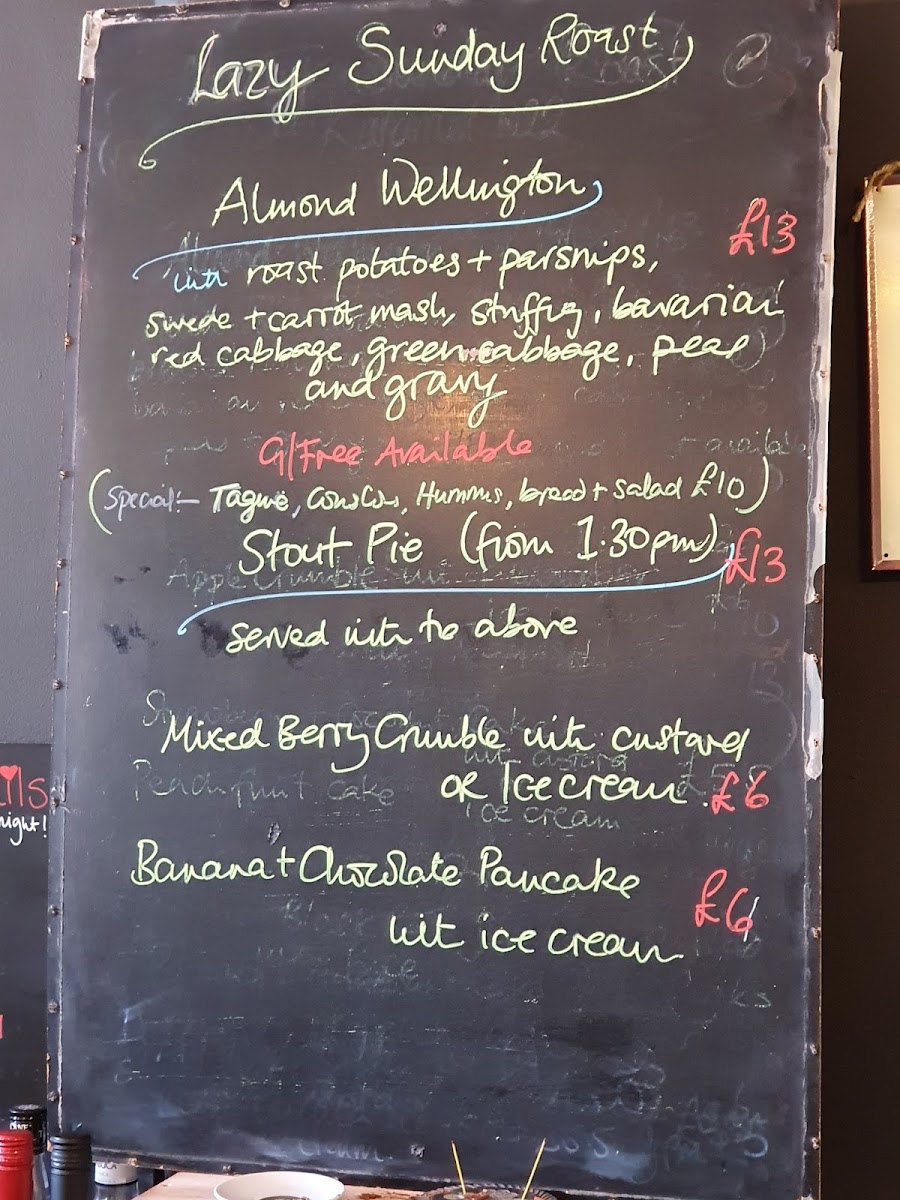 Lazy Sunday Roast
Almond Wellington
£13
with roast potatoes + parsnips,
swede + carrot mash, stuffing, bavarian
red cabbage, green cabbage, peas
and gravy
G/Free Available
(Special:- Tagine, Couscous, Hummus, bread + salad £10)
Stout Pie (from 1.30pm) £13
served with the above
Mixed Berry Crumble with custard
or Ice cream £6
Banana + Chocolate Pancake
£6
with ice cream
ils
night!